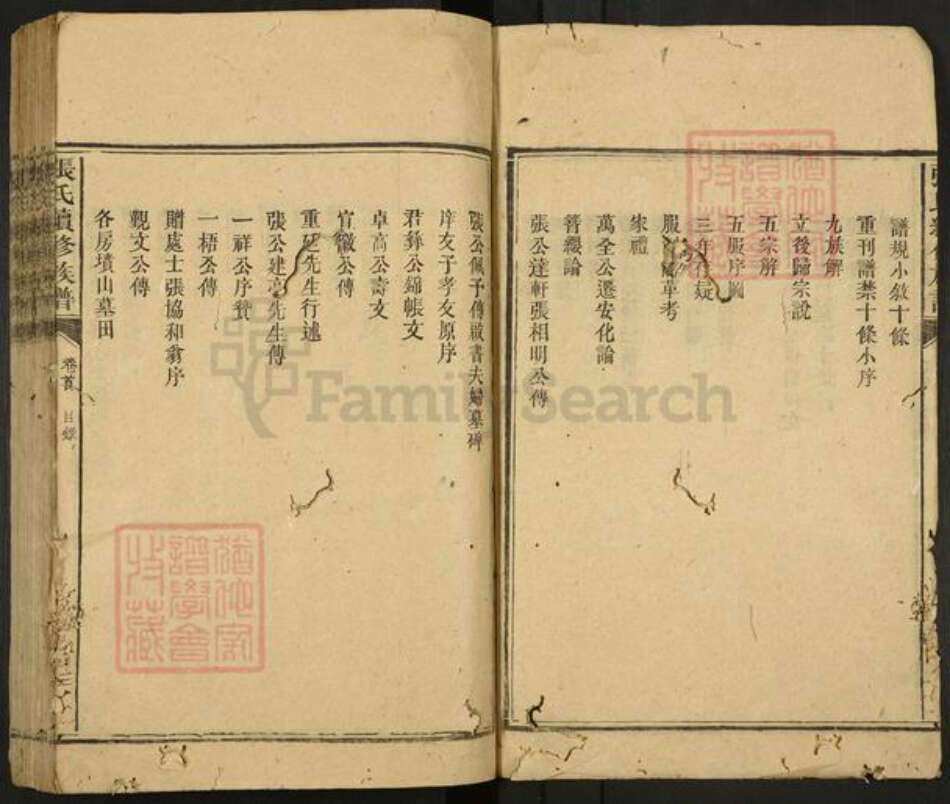 譜規小敘十條
重刊譜禁十條小序
九族解
立後歸宗說
五宗解
五服序圖
三年疑
服考
家禮
萬全公遷安化論
簪纓論
張公達軒張相明公傳
張公佩予傳敕書夫婦墓碑
庠友于孝友原序
君彝公錦帳文
卓高公壽文
官徽公傳
重延先生行述
張公建亭先生傳
一祥公序贊
一梧公傳
贈處士張協和翁序
觀文公傳
各房墳山墓田
張氏續修族譜
卷首 目錄
FamilySearch
猶他家譜學會收藏
猶他家譜學會收藏